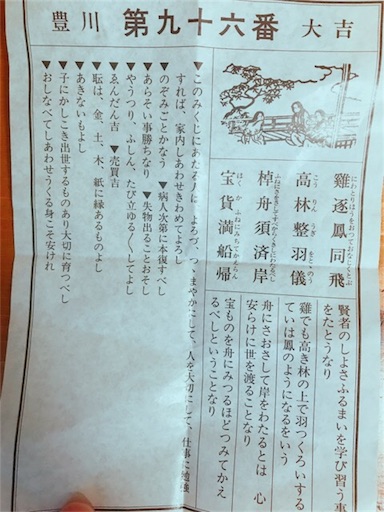 豊川 第九十六番 大吉
雞逐鳳同飛
高林整羽儀
棹舟須済岸
宝貨満船帰
賢者のしよさふるまいを学び習う事
をたとうなり
雞でも高き林の上で羽つくろいする
ていは鳳のようになるをいう
舟にさおさして岸をわたるとは 心
安らけに世を渡ることなり
宝ものを舟にみつるほどつみてかえ
るべしということなり
▼このみくじにあたる人は、よろづ、つゝまやかにして、人を大切にして、仕事に勉強
すれば、家内しあわせきわめてよろし
▼のぞみごとかなう ▼病人次第に本復すべし
▼あらそい事勝ちなり ▼失物出ることおそし
▼やうつり、ふしん、たび立ゆる〱してよし
▼ゑんだん吉 ▼売買吉
▼耺は、金、土、木、紙に縁あるものよし
▼あきないもよし
▼子にかしこき出世するものあり大切に育つべし
▼おしなべてしあわせうくる身こそ安けれ